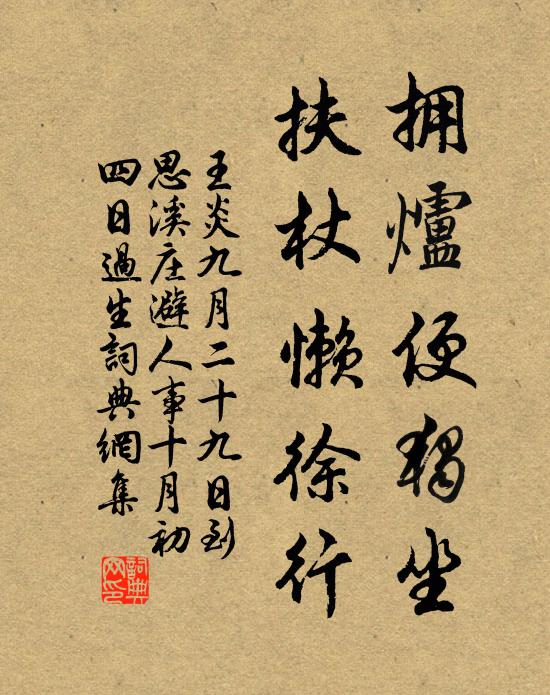 拥爐便獨坐
扶杖懒徐行
王炎九月二十九日到
思溪庄避人事十月初
四日過生詞典網集
詞典
网印